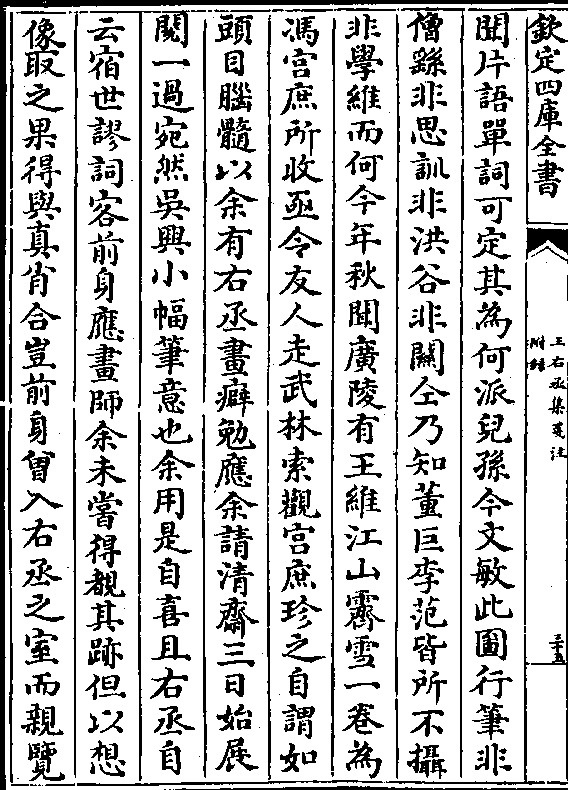 欽定四庫全書
王右丞集箋注
附錄
三十五
聞片語單詞可定其為何派兒孫今文敏此圖行筆非
僧繇非思訓非洪谷非關仝乃知董巨李范皆所不攝
非學維而何今年秋聞廣陵有王維江山霽雪一卷為
馮宮庶所收亟令友人走武林索觀宮庶珍之自謂如
頭目腦髓以余有右丞畫癖勉應余請清齋三日始展
閱一過宛然吳興小幅筆意也余用是自喜且右丞自
云宿世謬詞客前身應畫師余未嘗得覩其跡但以想
像取之果得與真肖合豈前身曾入右丞之室而親覽